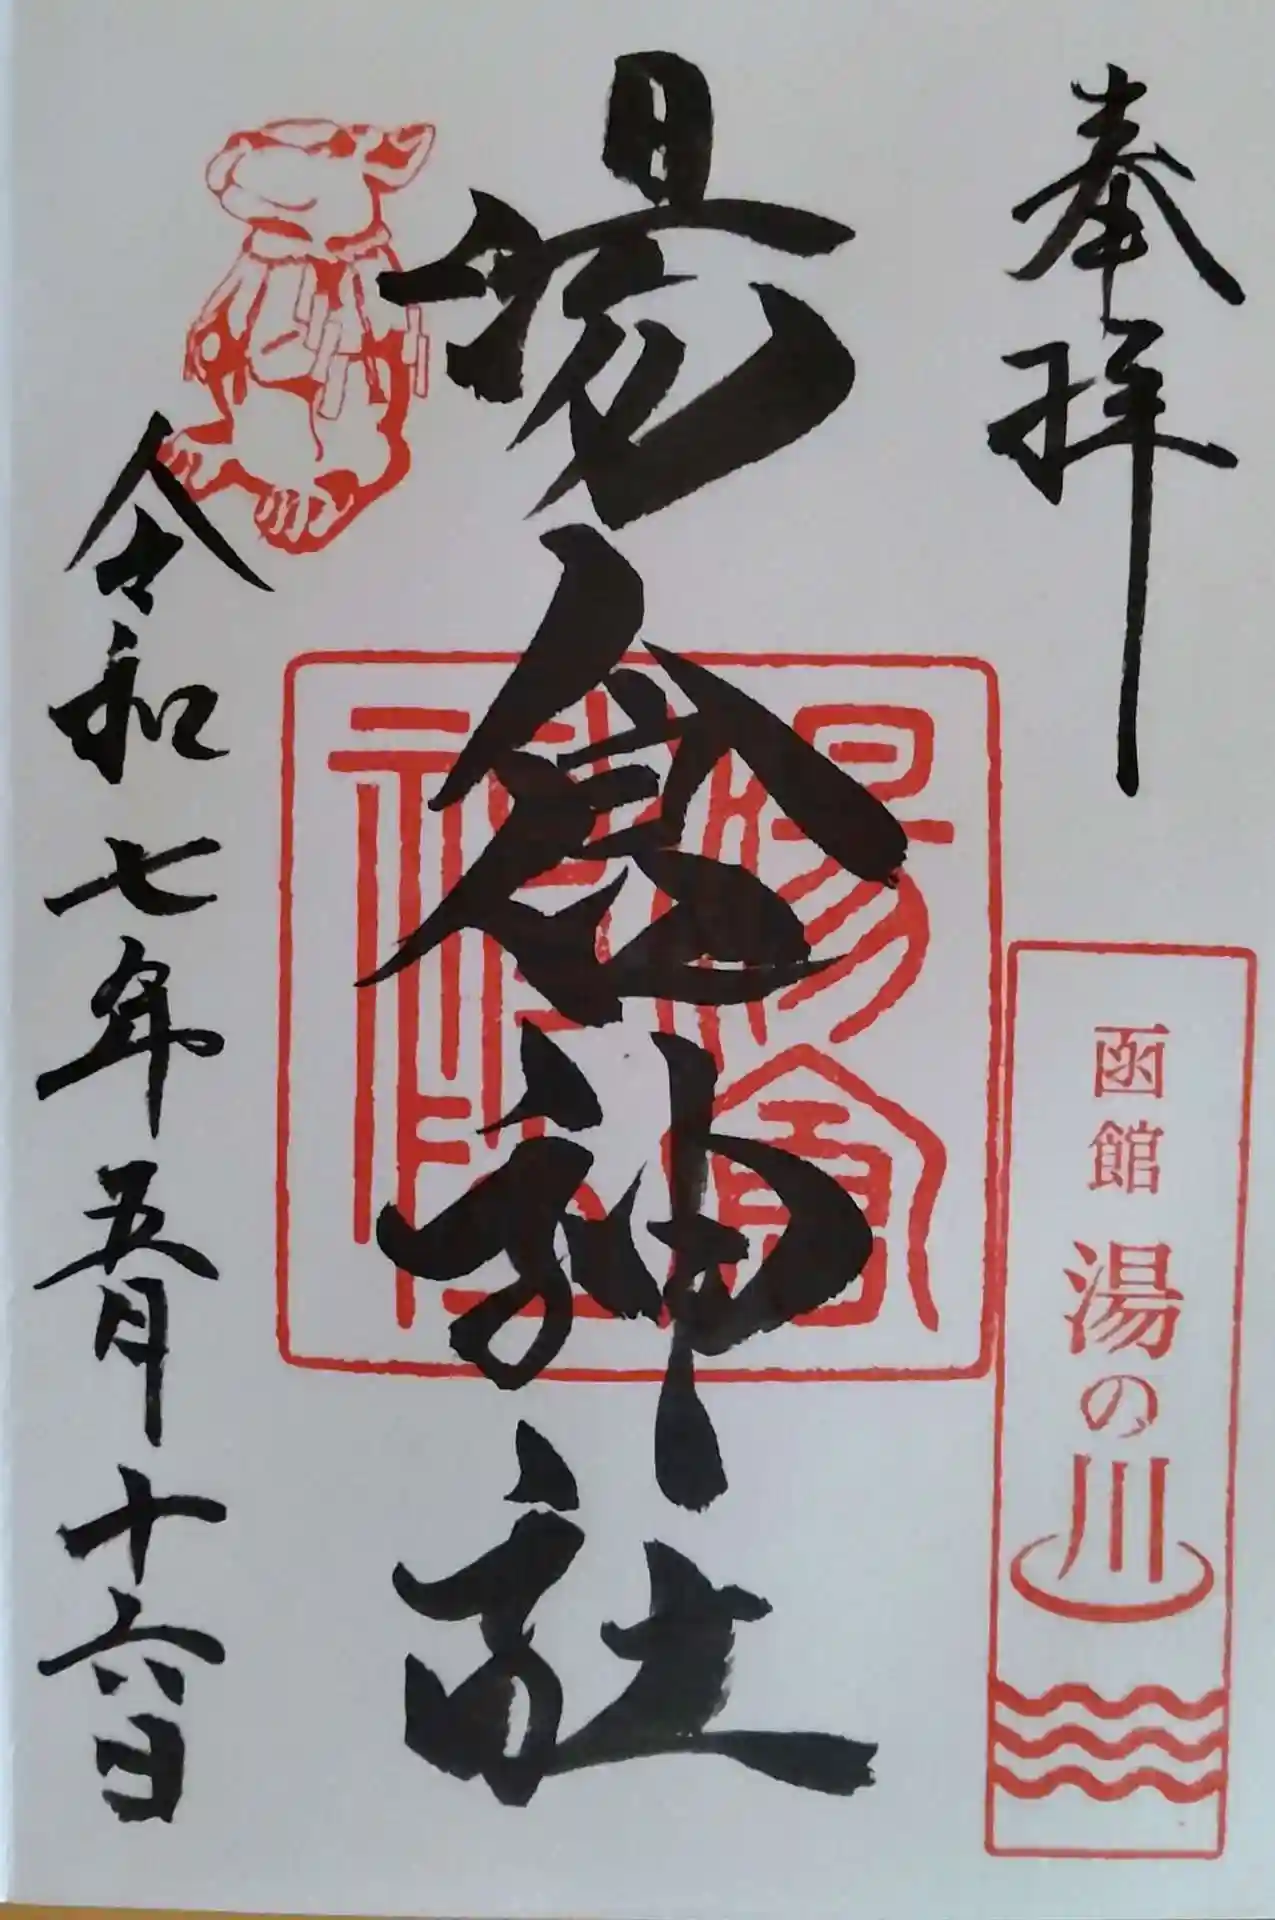 奉拝
函館 湯の川
湯倉神社
湯倉
神社
令和七年五月十六日